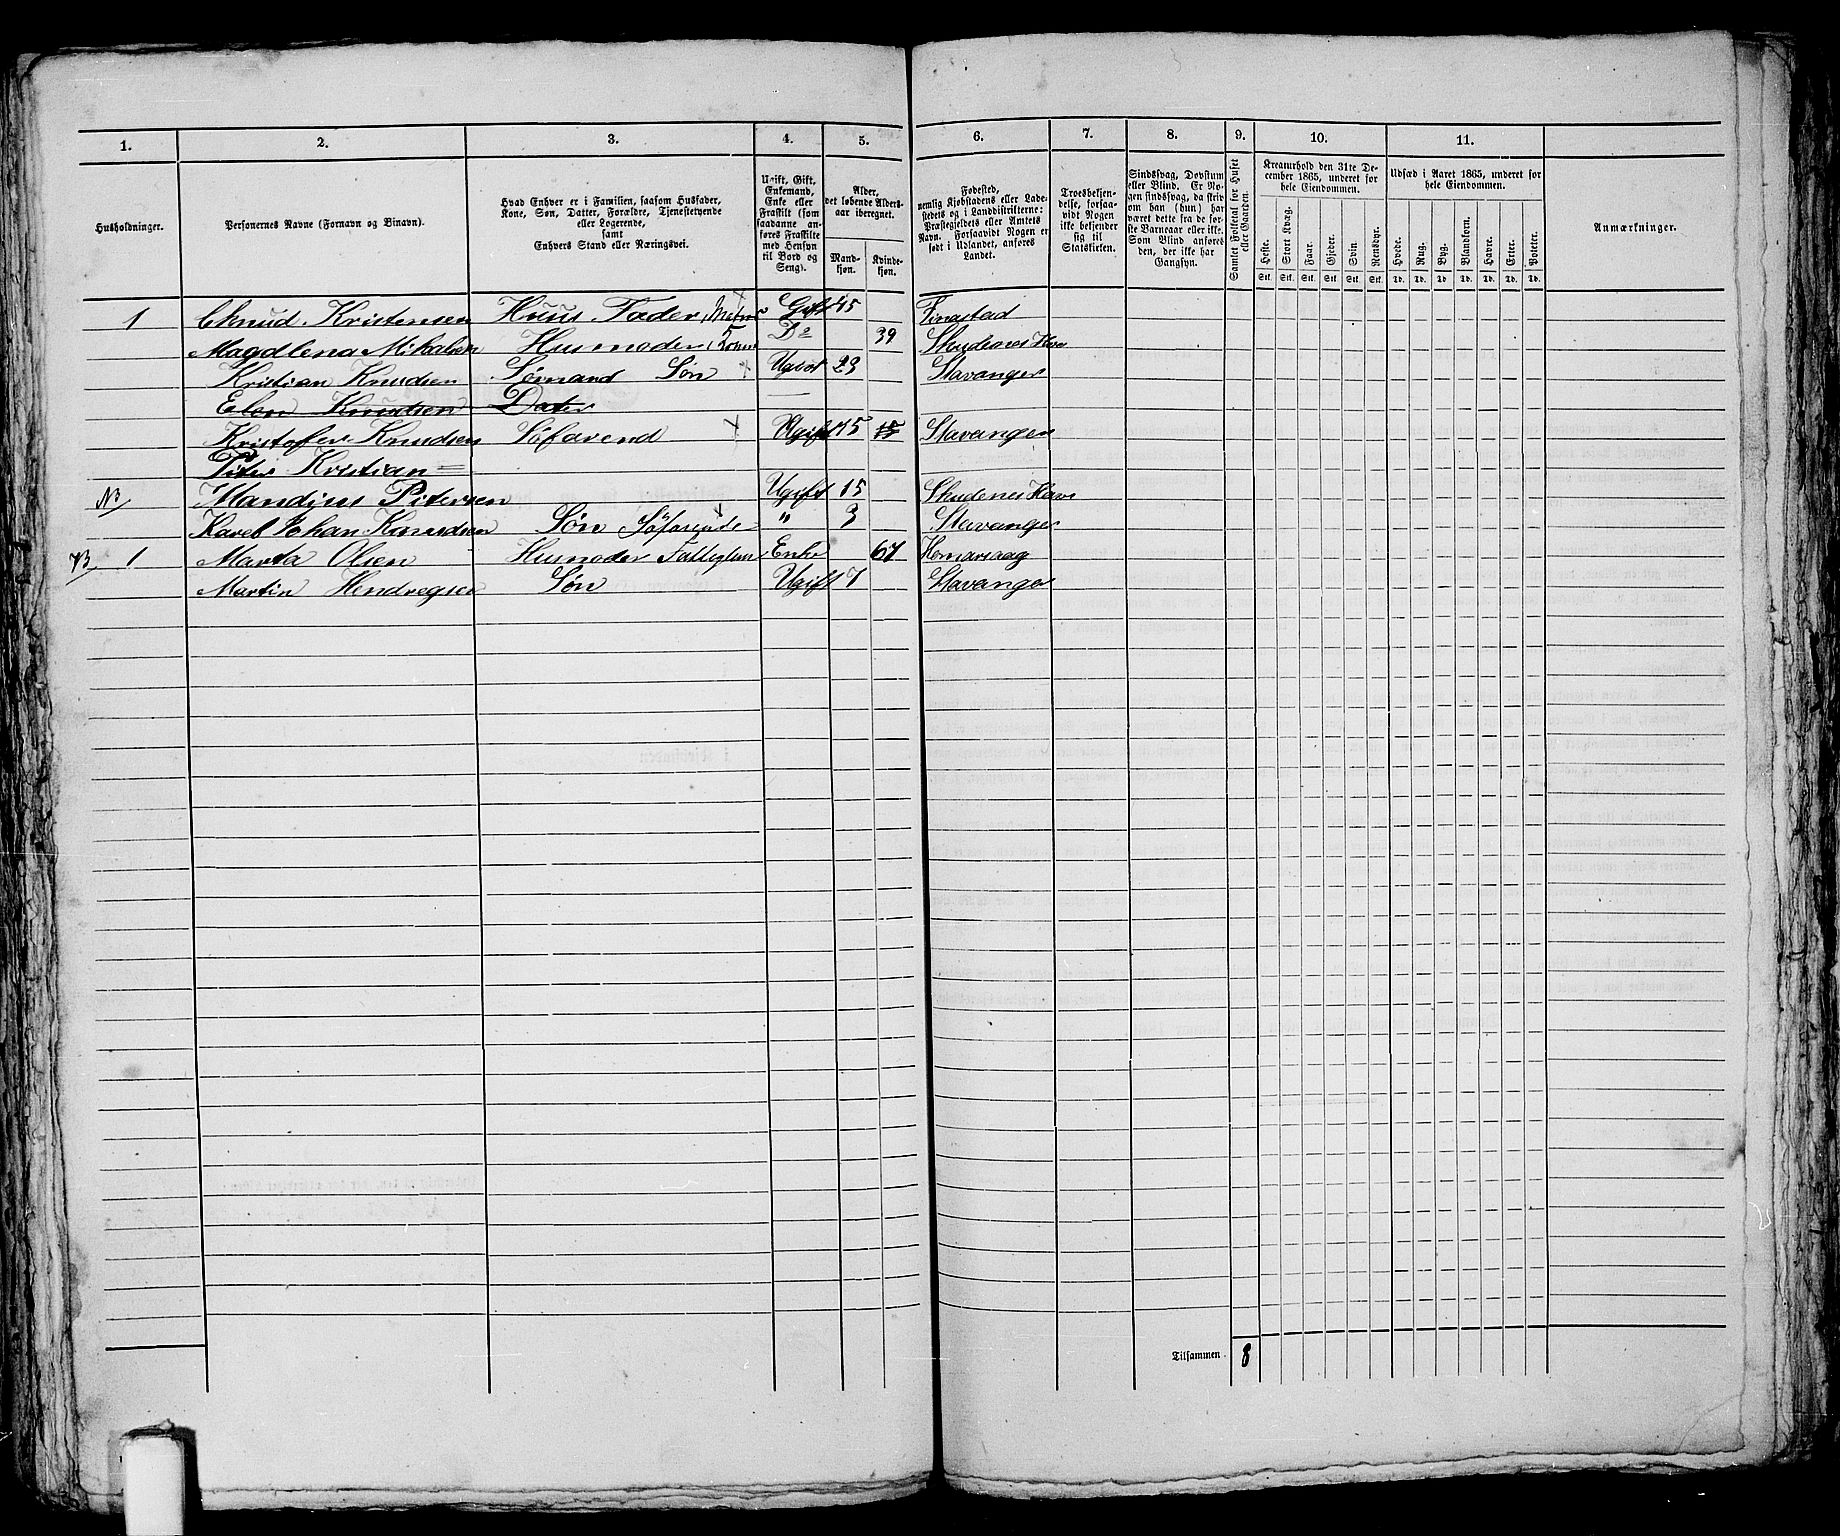 1. 2. 3. 4. 5. 6. 7. 8. 9. 10. 11.
Husholdninger.
Personernes Navne (Fornavn og Binavn).
Hvad Enhver er i Familien, saasom Husfader,
Kone, Søn, Datter, Forældre, Tjenestetyende
eller Logerende,
samt
Enhvers Stand eller Næringsvei.
Ugift, Gift,
Enkemand,
Enke eller
Fraskilt (som
saadanne an-
føres Fraskilte
med Hensyn
til Bord og
Seng).
Alder,
det løbende Alders-
aar iberegnet.
Mand-
kjøn.
Kvinde-
kjøn.
Fødested,
nemlig Kjøbstadens eller Lade-
stedets og i Landdistrikterne:
Præstegjeldets eller Amtets
Navn. Forsaavidt Nogen er
født i Udlandet, anføres
Landet.
Troesbekjen-
delse, forsaa-
vidt Nogen
ikke bekjender
sig til
Statskirken.
Sindssvag, Døvstum
eller Blind. Er No-
gen sindssvag, da skriv
om han (hun) har
været dette fra de før-
ste Barneaar eller ikke.
Som Blind anføres
den, der ikke har
Gangsyn.
Samlet Folketal for Huset
eller Gaarden.
Kreaturhold den 31te De-
cember 1865, underet for
hele Eiendommen.
Heste. Stort Kvæg. Faar. Gjeder. Svin. Rensdyr.
Stk. Stk. Stk. Stk. Stk. Stk.
Udsæd i Aaret 1865, underet for
hele Eiendommen.
Hvede. Rug. Byg. Blandkorn. Havre. Erter. Poteter.
Td. Td. Td. Td. Td. Td. Td.
Anmærkninger.
1 Knud Kristensen Huus Fader Gift 45 Finastad
Magdlena Mikalsen Husmoder Kone Do 39 Skudenes Havn
Kristian Knudsen Sømand Søn Ugivt 23 Stavanger
Elen Knudsen Dater
Kristofer Knudsen Søfarend Ugift 15 15 Stavanger
Piter Kristian
NB Mandius Pitersen Ugift 15 Skudenes Havn
Karel Johan Knudsen Søn Søfarende " 3 Stavanger
NB 1 Marta Olsen Husmoder Fattiglem Enke 67
Martin Hendregsen Søn Ugift 7 Stavanger
Tilsammen 8